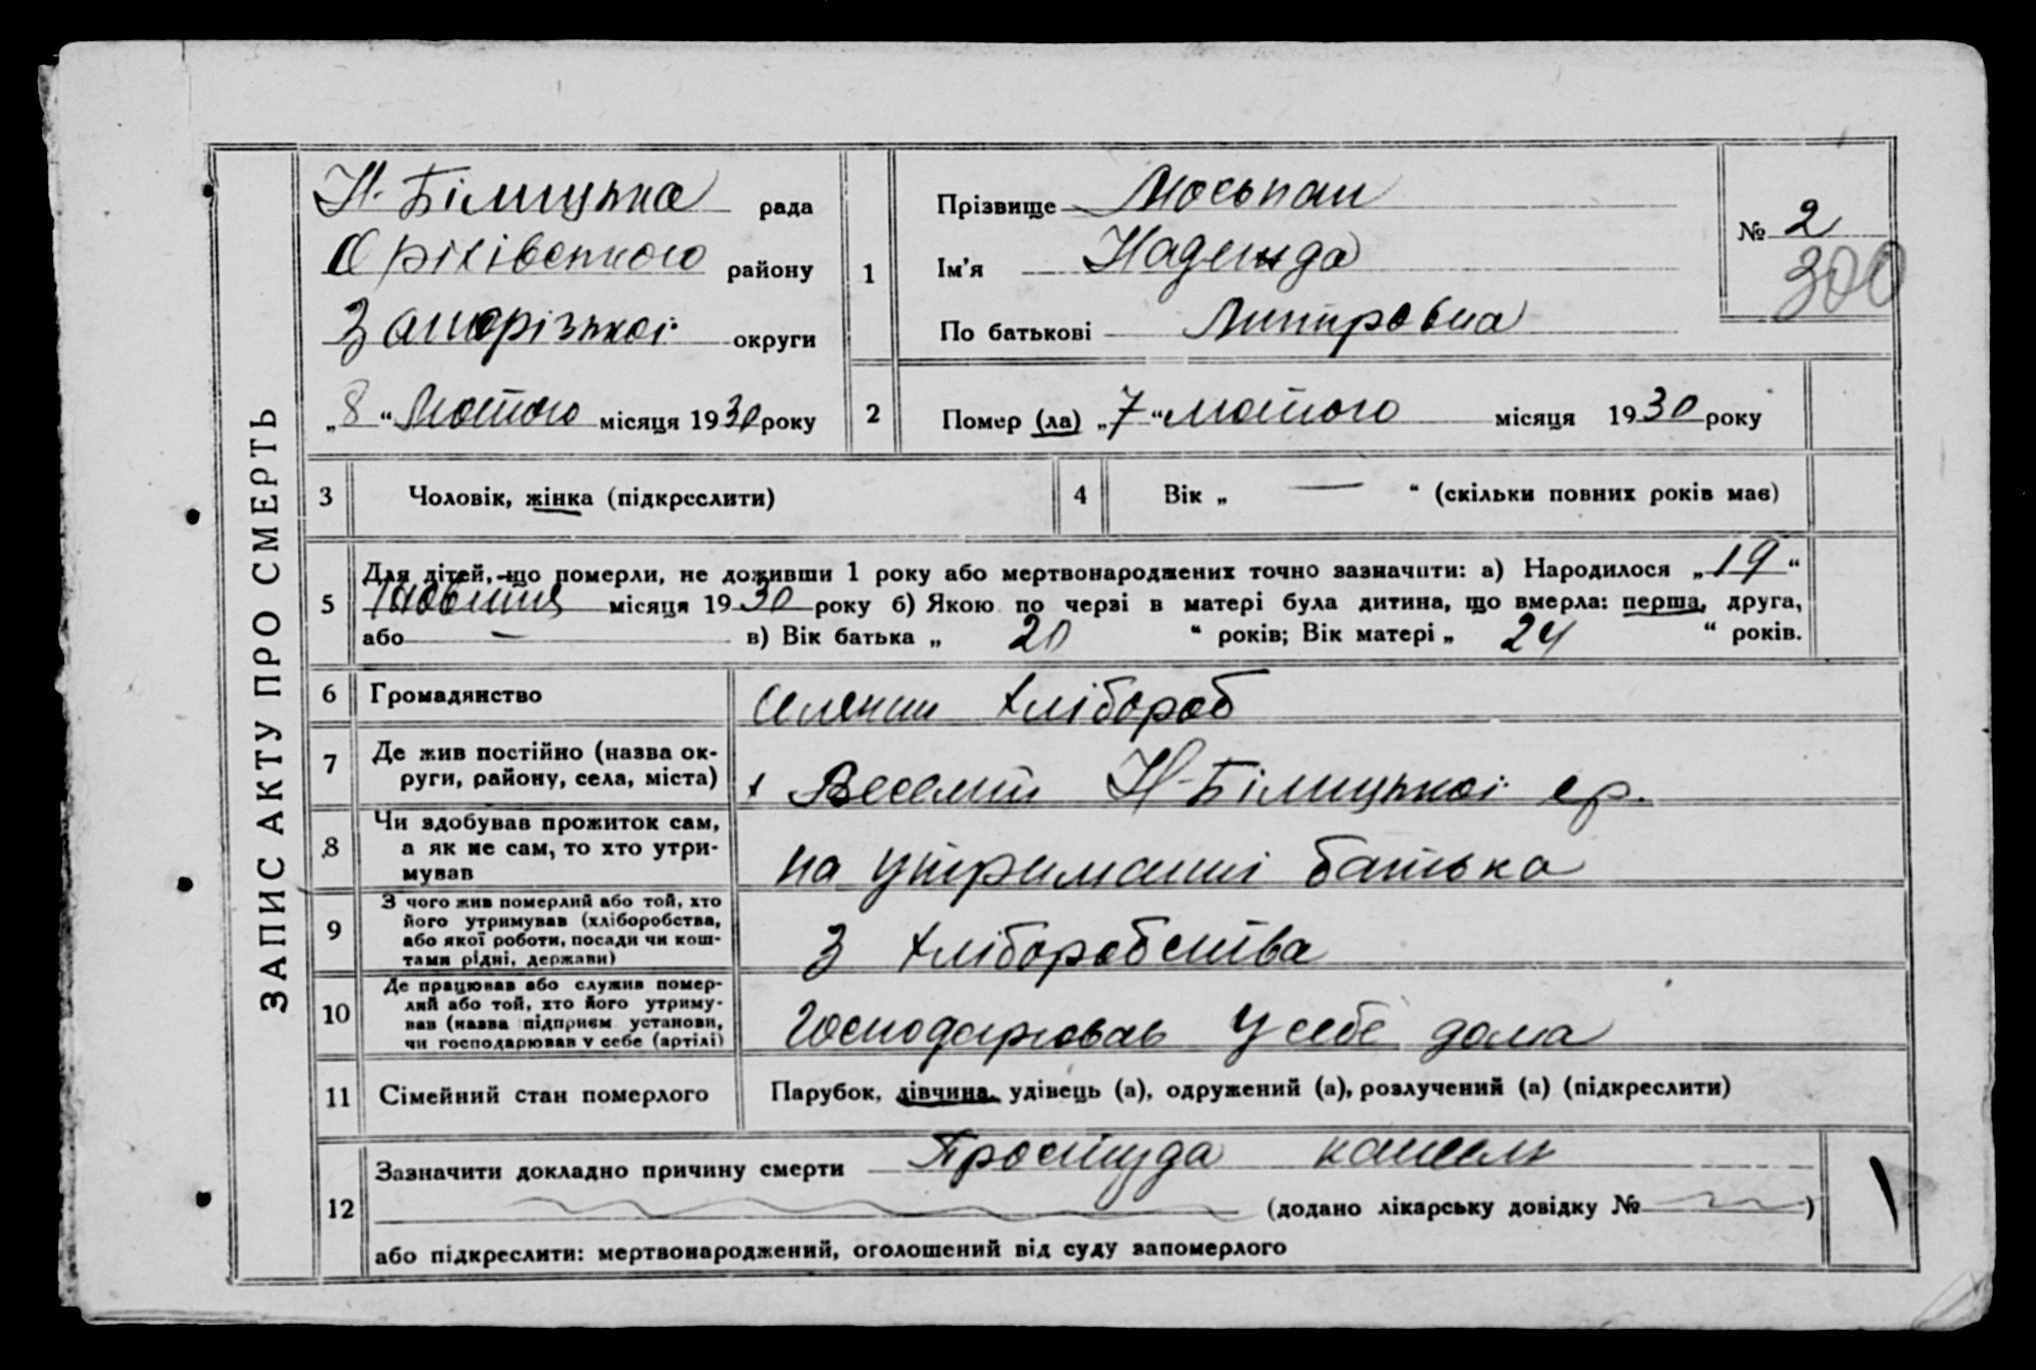 ЗАПИС АКТУ ПРО СМЕРТЬ
Н-Білицька рада
Оріхівського району
Запорізької округи
„8“ Лютого місяця 1930 року
1
Прізвище Моськан
Ім'я Надежда
По батькові Митровна
№ 2
300
2
Помер (ла) „7“ лютого місяця 1930 року
3 Чоловік, жінка (підкреслити)
4 Вік „ — “ (скільки повних років має)
5 Для дітей, що померли, не доживши 1 року або мертвонароджених точно зазначити: а) Народилося „19“
місяця 1930 року б) Якою по черзі в матері була дитина, що вмерла: перша, друга,
або — в) Вік батька „ 20 “ років; Вік матері „ 24 “ років.
6 Громадянство селянин хлібороб
7 Де жив постійно (назва округи, району, села, міста) х Веселий Н-Білицької ср.
8 Чи здобував прожиток сам,
а як не сам, то хто утри-
мував
на утриманні батька
9 З чого жив померлий або той, хто
його утримував (хліборобства,
або якої роботи, посади чи кош-
тами рідні, держави)
З хліборобства
10 Де працював або служив помер-
лий або той, хто його утриму-
вав (назва підприєм. установи,
чи господарював у себе (артілі)
Господарював у себе дома
11 Сімейний стан померлого Парубок, дівчина, удівець (а), одружений (а), розлучений (а) (підкреслити)
12 Зазначити докладно причину смерти Простуда кашель
(додано лікарську довідку № )
або підкреслити: мертвонароджений, оголошений від суду запомерлого